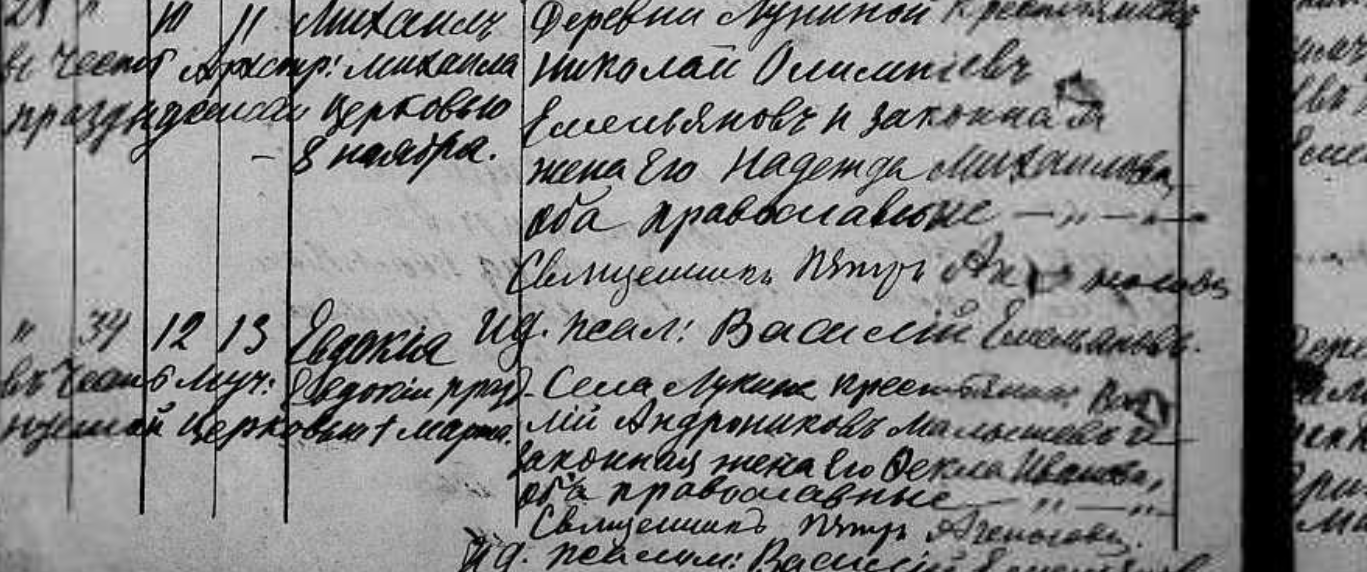 10 11 Михаилъ Деревни Лукиной Крестьянинъ
въ честь Архстр: Михаила Николай Олимпіевъ
празднуемый Церковью Емельяновъ и законная
8 ноября. жена Его Надежда Михаилова,
оба православные — „ — „ —
Священникъ Петръ
Ид. псал: Василій Емельяновъ.
" 34 12 13 Евдокіа
въ честь муч: Евдокіи празд- Села Лукина крестьянинъ
нуемой Церковью 1 марта. лій Андрониковъ Малышевъ и
законная жена Его Фекла Иванова,
оба православные — „ — „
Священникъ Петръ
Ид. псалом: Василій